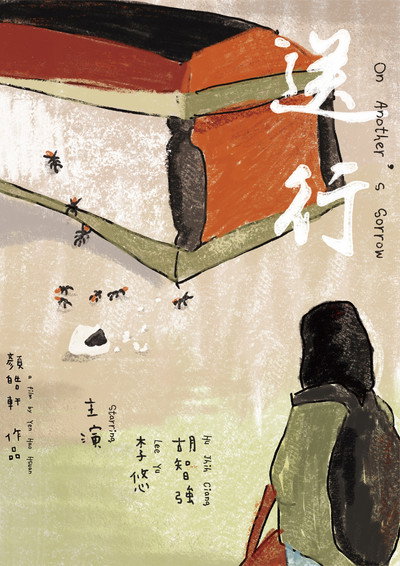 送行
On Another's Sorrow
Hu Jhih Ciang
胡智強
Lee Yu
李悠
Starring
主演
a film by Yen Hao Hsuan
顏皓軒 作品